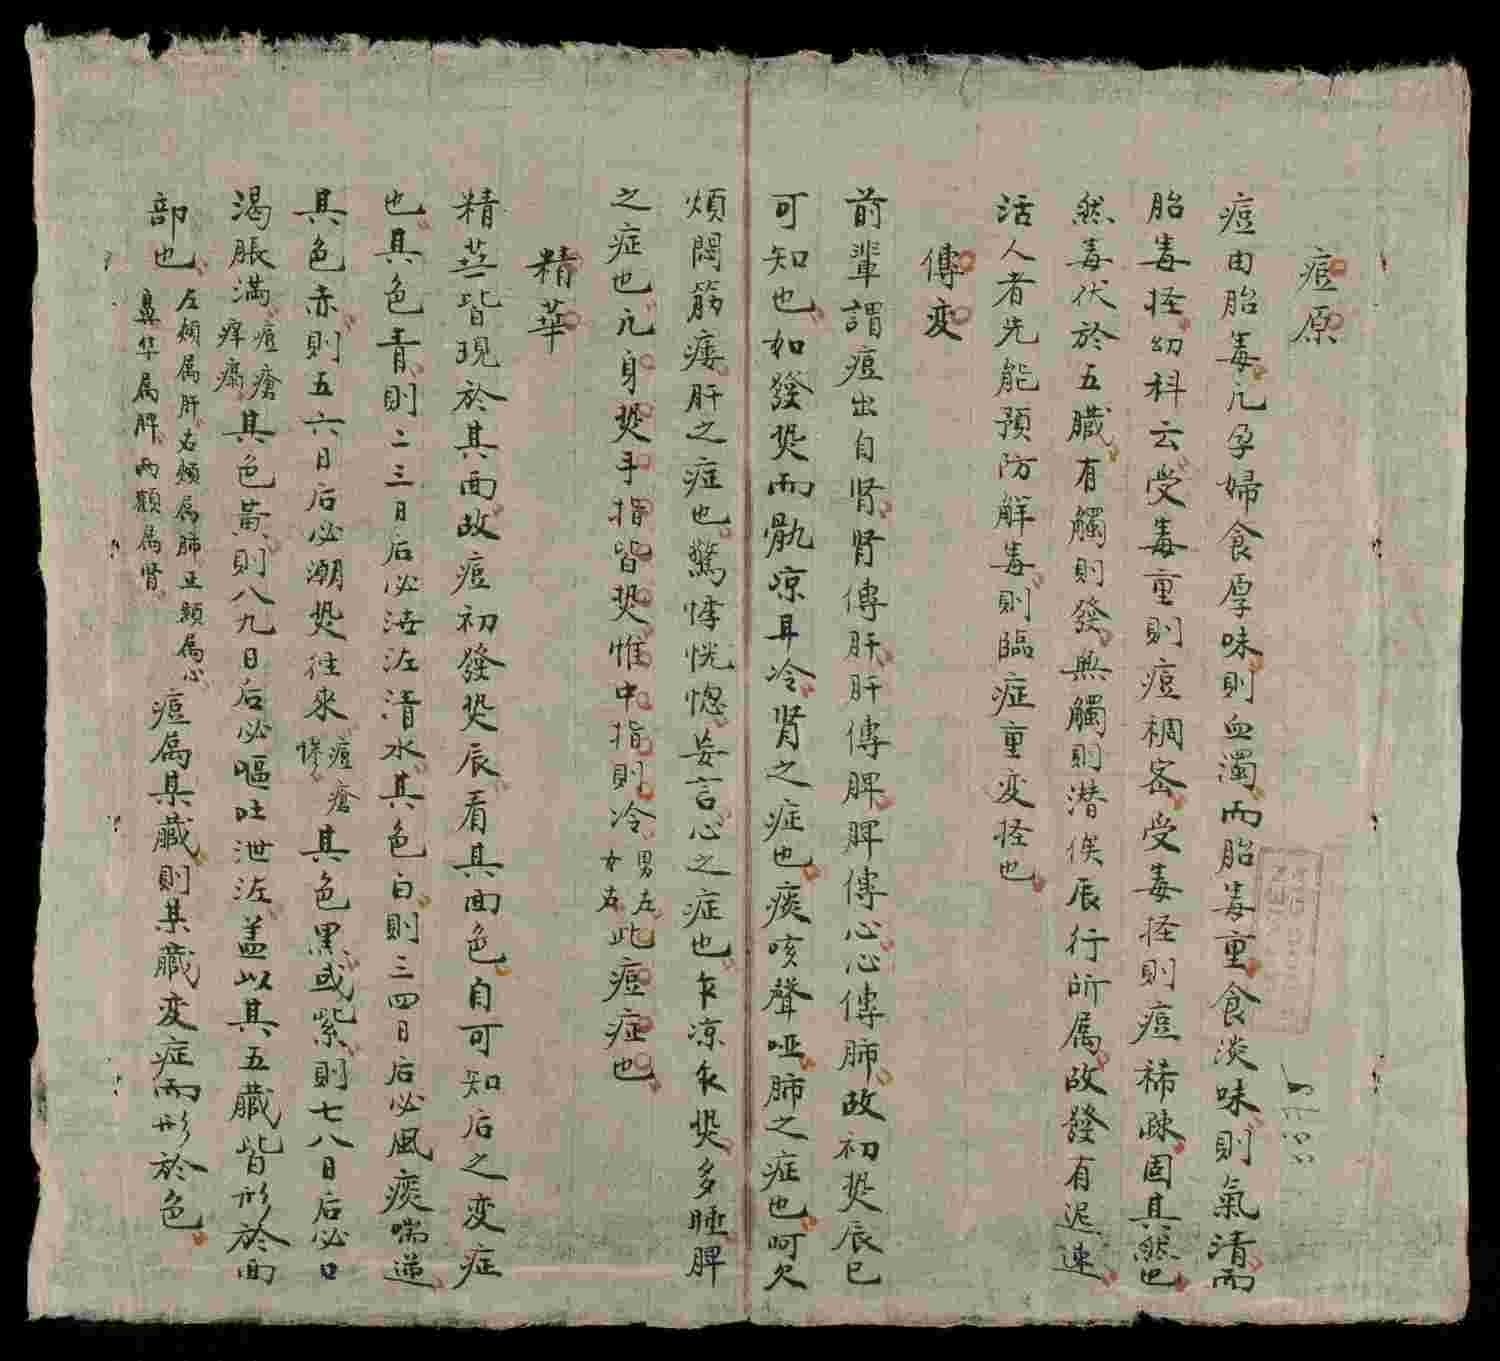 痘原
痘由胎毒凢孕婦食厚味則血濁而胎毒重食淡味則氣清而
胎毒輕幼科云受毒重則痘稠密受毒輕則痘稀疎固其然也
然毒伏於五臟有觸則發無觸則潜俟辰行所属故發有迟速
活人者先能預防解毒則臨症重变輕也
傳变
前輩謂痘出自肾肾傳肝肝傳脾脾傳心心傳肺故初热辰已
可知也如發热而骩凉耳冷肾之症也痰咳聲哑肺之症也呵欠
煩悶筋痿肝之症也驚悸恍惚妄言心之症也乍凉乍热多睡脾
之症也凢身热手指皆热惟中指則冷男左女右此痘症也
精華
精華皆現於其面故痘初發热辰看其面色自可知后之变症
也其色青則二三日后必洁泻清水其色白則三四日后必風痰喘逆
其色赤則五六日后必潮热往來痘瘡其色黑或紫則七八日后必口
渴脹满痘瘡痒其色黄則八九日后必嘔吐泄泻盖以其五臟皆形於面
部也左頰属肝右頰属肺正額属心鼻华属脾两顴属肾痘属某臟則某臟变症而形於色